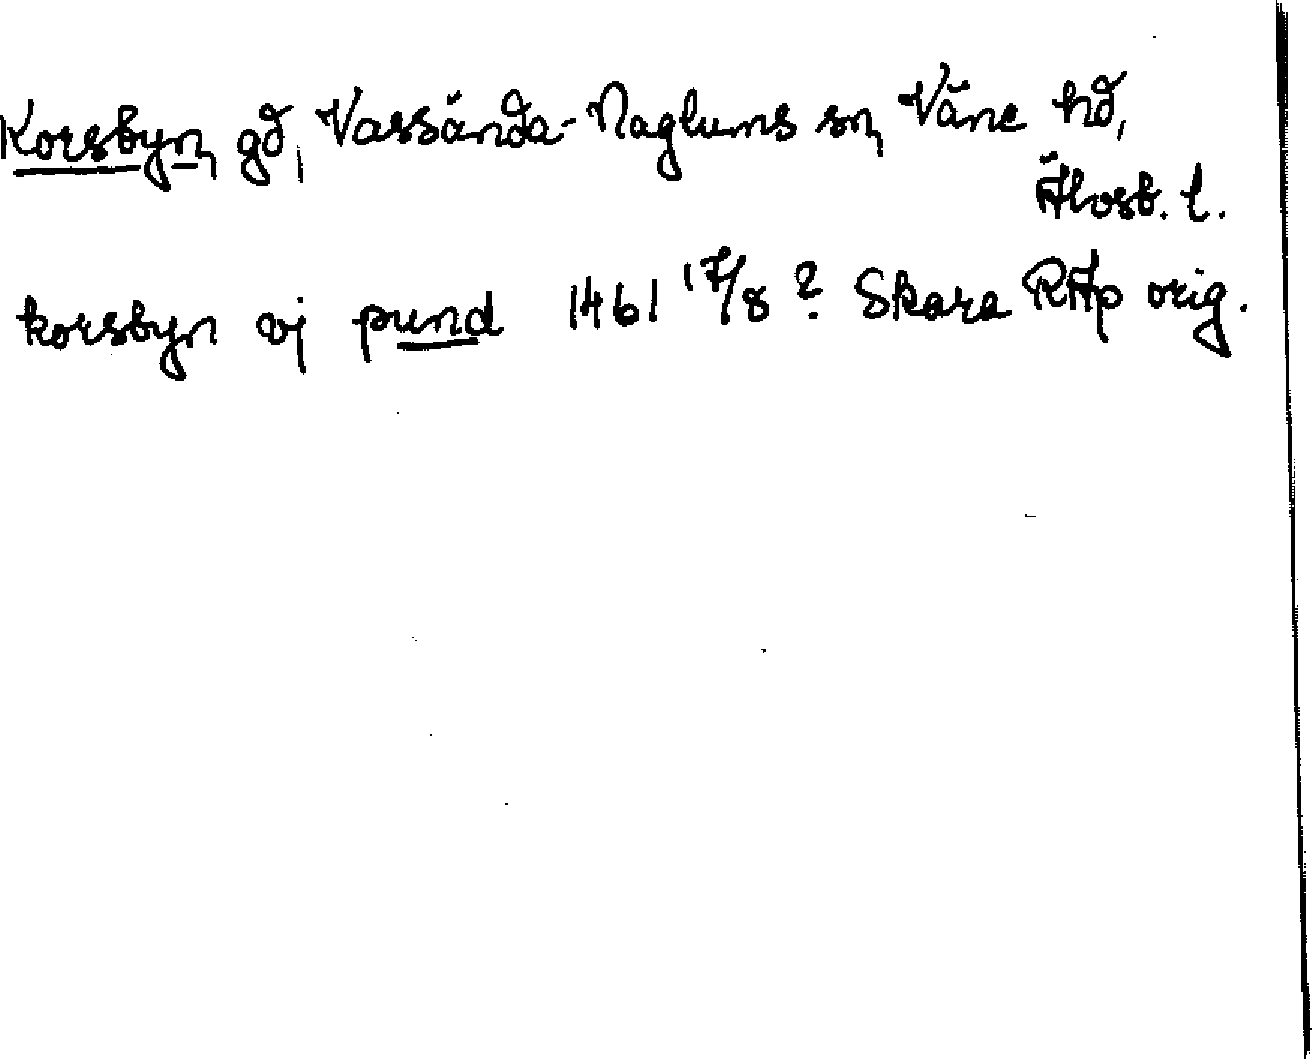 Korsbyn, gd, Vassända-Naglums sn, Väne hd,
Älvsb. l.
korsbyn vj pund 1461 17/8? Skara RAp orig.